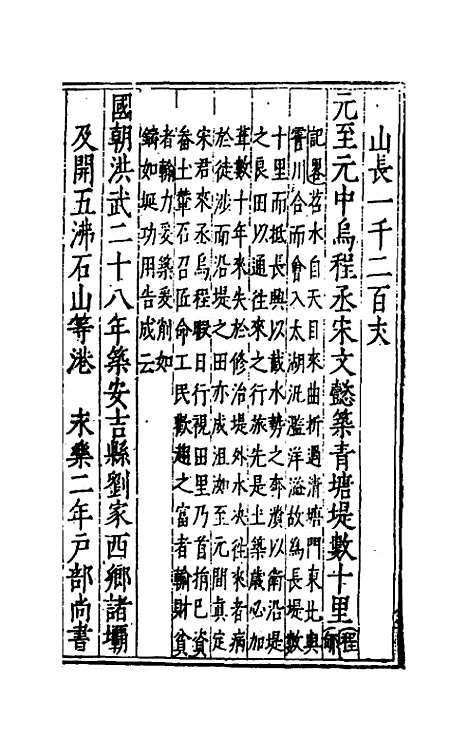 山長一千二百丈
元至元中烏程丞宋文懿築青塘堤數十里
程
記畧苕水自天目來曲折過清塘門東北與
霅川合而會入太湖汎濫洋溢故為長堤數
十里而抵長興以截水勢之奔潰以衛沿堤
之良田以通往來之行旅先是土築歲必加
葺數十年來失於修治堤外水决往來者病
於徒涉而沿堤之田亦成沮洳至元間真定
宋君來丞烏程暇日行視田里乃首捐己資
畚土輦石召匠命工民歡趨之富者輸財貧
者輸力爰築爰削如
鏄如埏功用告成云
國朝洪武二十八年築安吉縣劉家西鄉諸壩
及開五沸石山等港 永樂二年戶部尚書